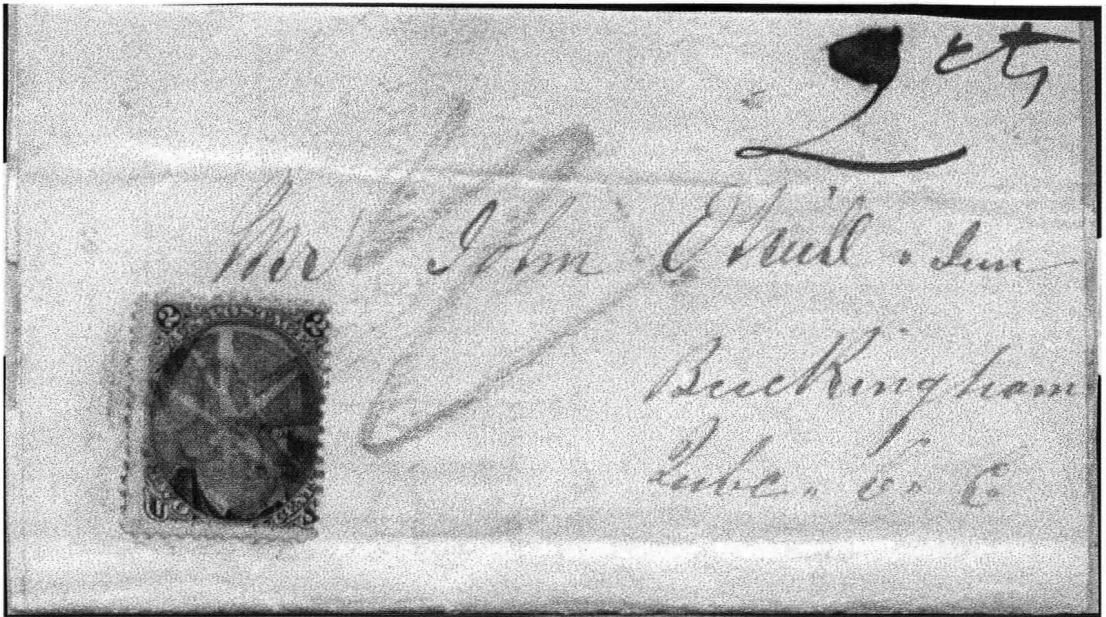 2 cts
Mr John O'Neill . Jun
Buckingham
Qubc. C. E.
2 POSTAGE 2
U